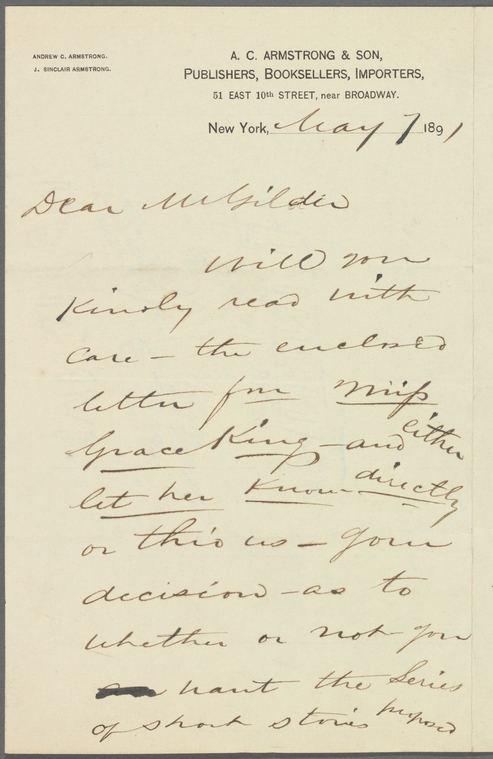 ANDREW C. ARMSTRONG.
J. SINCLAIR ARMSTRONG.
A. C. ARMSTRONG & SON,
PUBLISHERS, BOOKSELLERS, IMPORTERS,
51 EAST 10th STREET, near BROADWAY.
New York, May 7 1891
Dear Mr Gilder
Will you
Kindly read with
care – the enclosed
letter from Miss
Grace King – and either
let her know directly
or thro us – your
decision – as to
whether or not you
want the Series
of short stories proposed